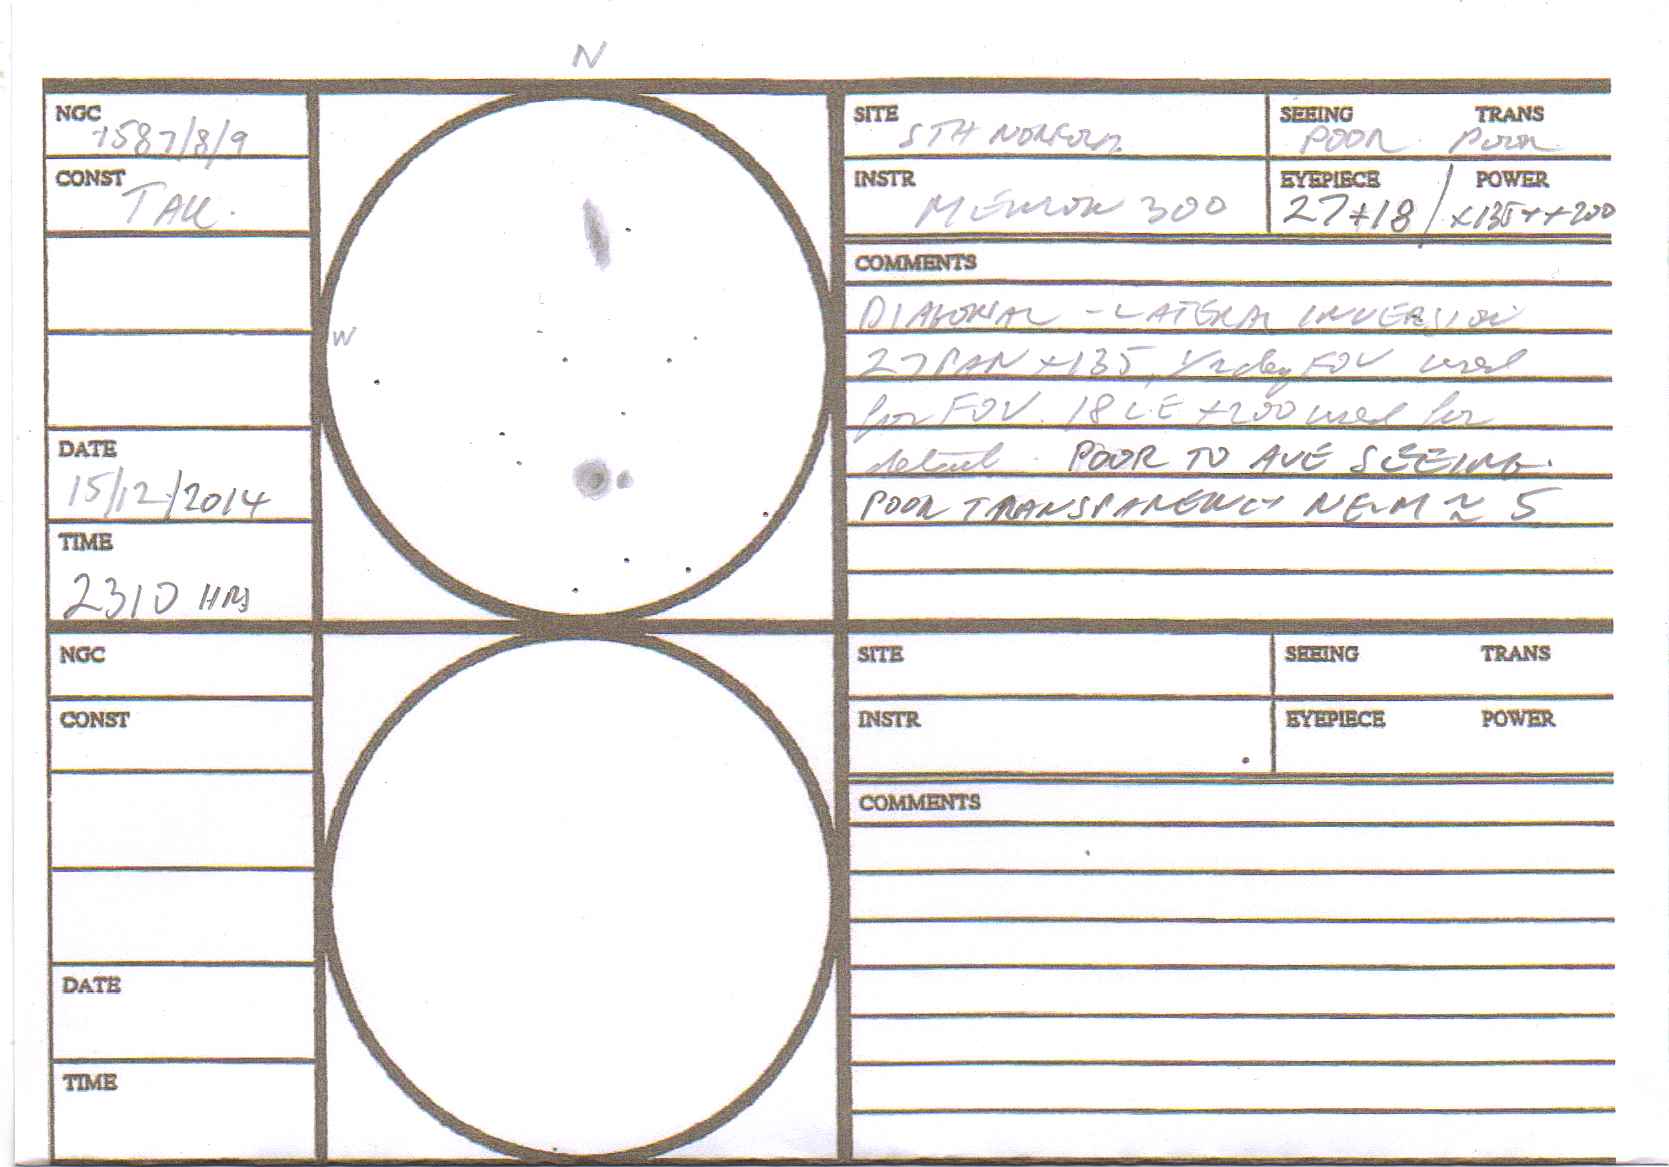 N
NGC
1587/8/9
CONST
TAU.
W
DATE
15/12/2014
TIME
2310 HRS
SITE
STH NORFOLK
SEEING TRANS
POOR POOR
INSTR
MEWLON 300
EYEPIECE POWER
27+18 / x135 + x200
COMMENTS
DIAGONAL - LATERAL INVERSION
27 PAN x135, 1/2 deg FOV used
for FOV. 18 L.E x200 used for
detail. POOR TO AVE SEEING.
POOR TRANSPARENCY NELM ≈ 5
NGC
CONST
DATE
TIME
SITE
SEEING TRANS
INSTR
EYEPIECE POWER
COMMENTS